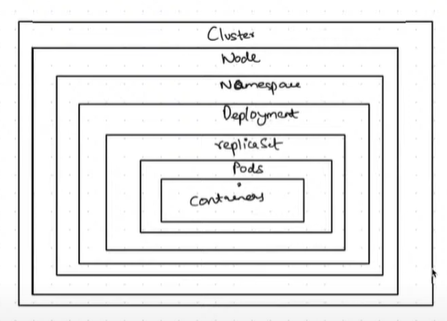 Cluster
Node
Namespace
Deployment
replicaSet
Pods
Containers